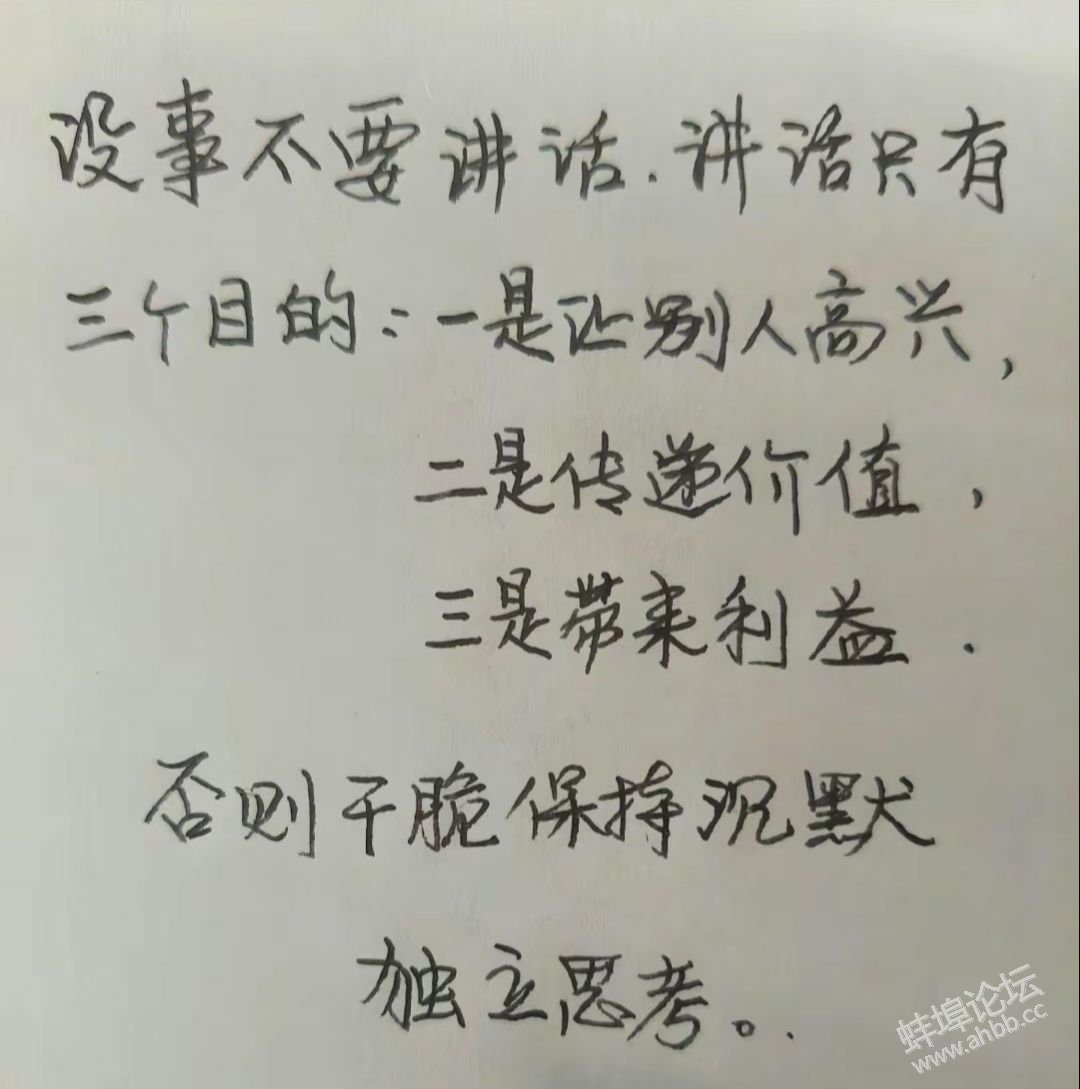 没事不要讲话.讲话只有
三个目的:一是让别人高兴,
二是传递价值,
三是带来利益.
否则干脆保持沉默
独立思考。.
蚌埠论坛
www.ahbb.cc